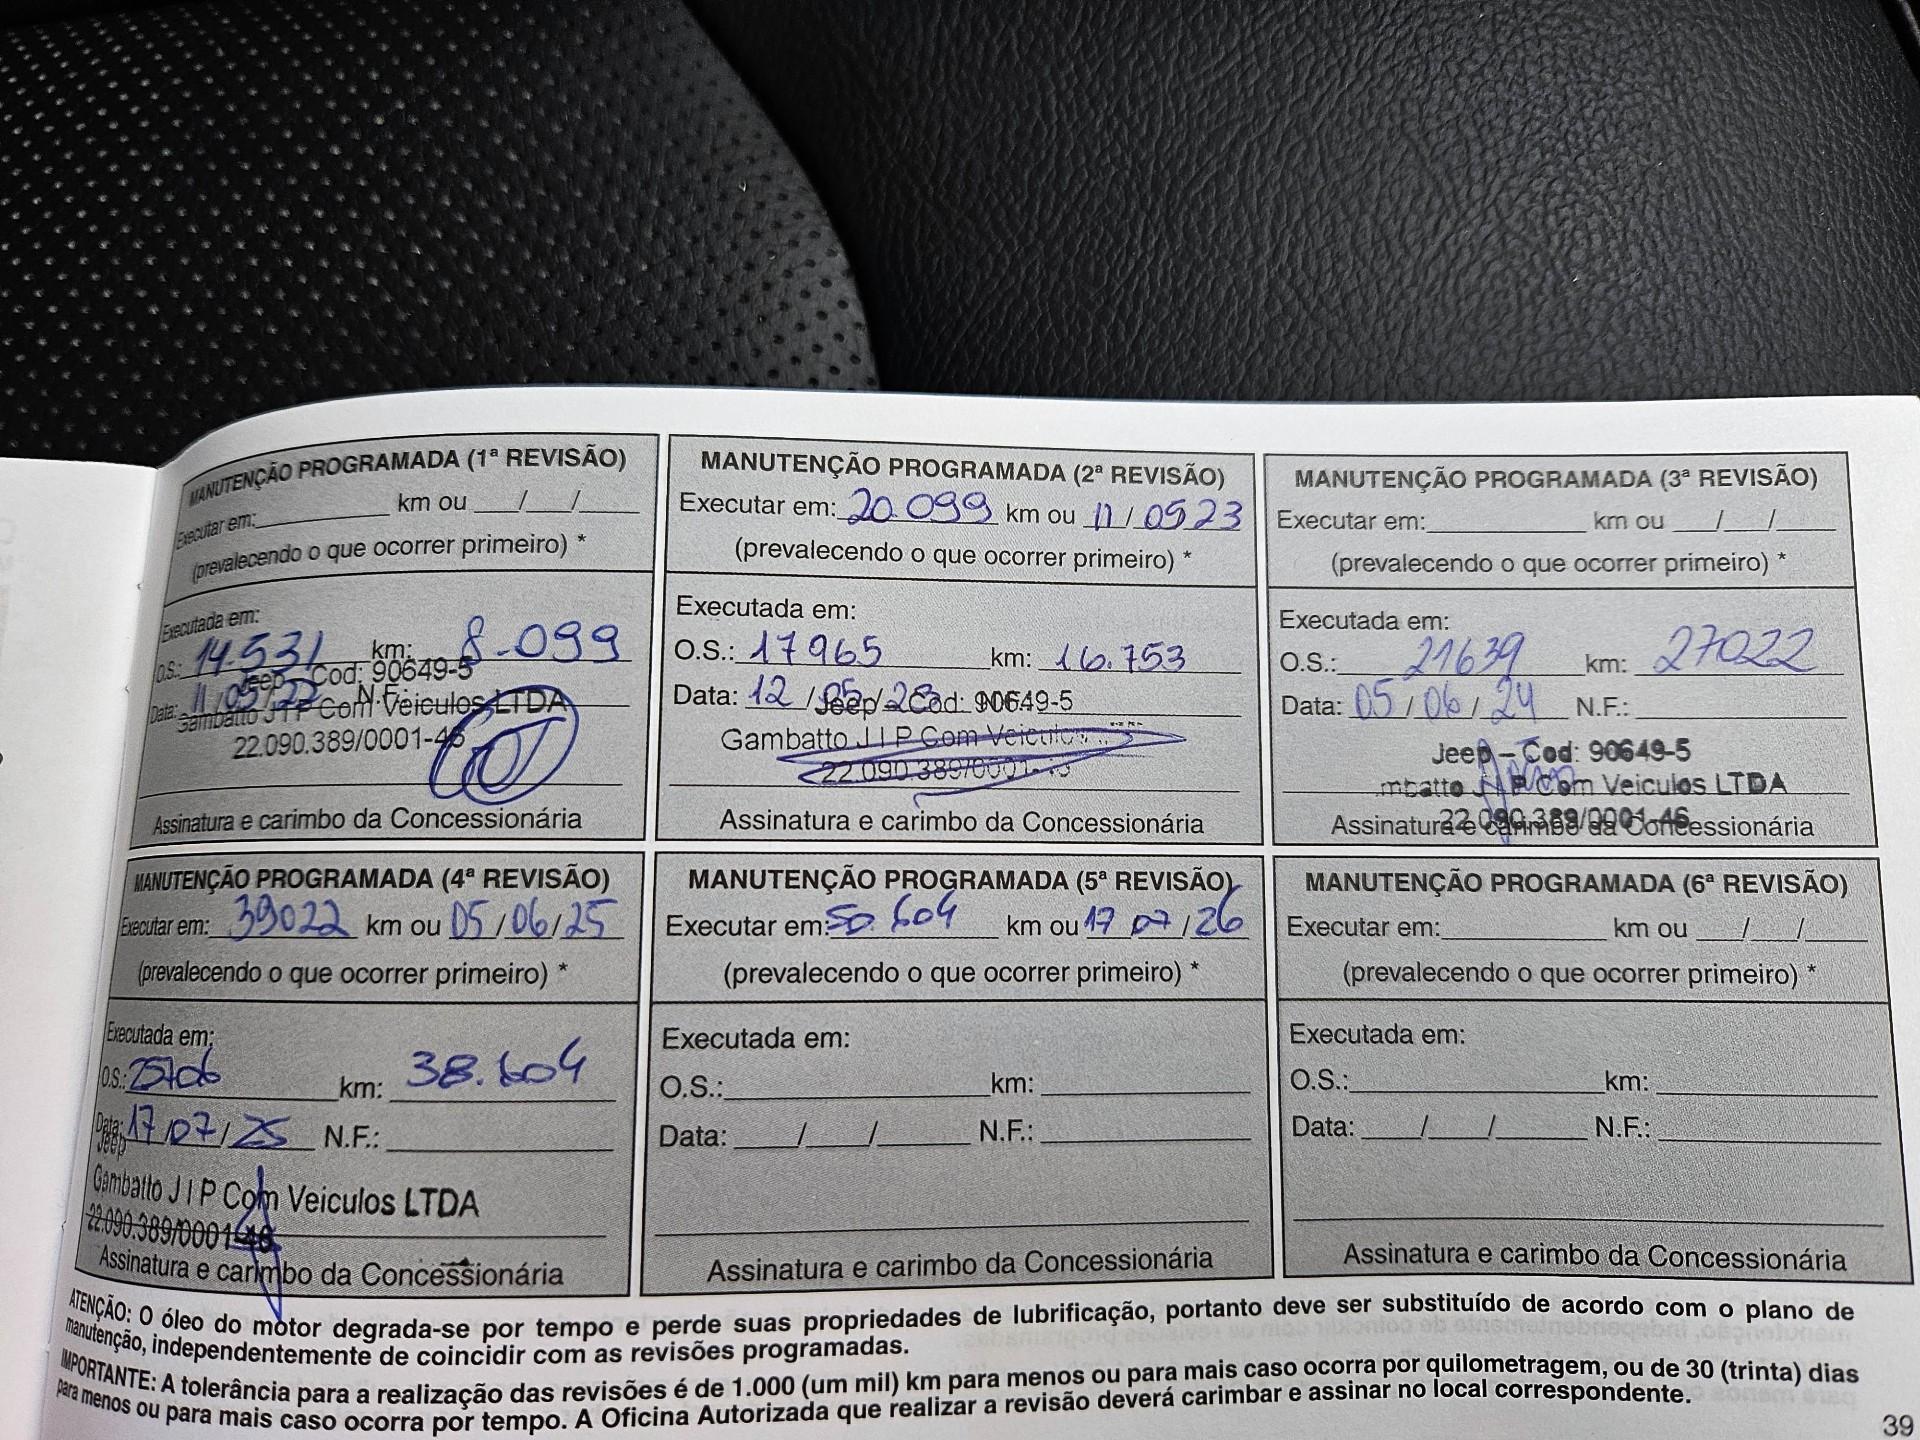 MANUTENÇÃO PROGRAMADA (1ª REVISÃO)
Executar em:__________ km ou ___/___/___
(prevalecendo o que ocorrer primeiro) *
Executada em:
O.S.: 14.531 km: 8.099
Jeep Cod: 90649-5
Data: 11/05/22 N.F.:
Gambatto J I P Com Veiculos LTDA
22.090.389/0001-46
Assinatura e carimbo da Concessionária
MANUTENÇÃO PROGRAMADA (2ª REVISÃO)
Executar em: 20.099 km ou 11/0523
(prevalecendo o que ocorrer primeiro) *
Executada em:
O.S.: 17965 km: 16.753
Data: 12/05/23 N.F.:
Jeep Cod: 90649-5
Gambatto J I P Com Veiculos
22.090.389/0001-46
Assinatura e carimbo da Concessionária
MANUTENÇÃO PROGRAMADA (3ª REVISÃO)
Executar em:__________ km ou ___/___/___
(prevalecendo o que ocorrer primeiro) *
Executada em:
O.S.: 21639 km: 27022
Data: 05/06/24 N.F.:
Jeep – Cod: 90649-5
mbatto J I P Com Veiculos LTDA
22.090.389/0001-46
Assinatura e carimbo da Concessionária
MANUTENÇÃO PROGRAMADA (4ª REVISÃO)
Executar em: 39022 km ou 05/06/25
(prevalecendo o que ocorrer primeiro) *
Executada em:
O.S.: 25706 km: 38.604
Data: 17/07/25 N.F.:
Jeep
Gambatto J I P Com Veiculos LTDA
22.090.389/0001-46
Assinatura e carimbo da Concessionária
MANUTENÇÃO PROGRAMADA (5ª REVISÃO)
Executar em: 50.604 km ou 17 07/26
(prevalecendo o que ocorrer primeiro) *
Executada em:
O.S.:__________ km:__________
Data: ___/___/___ N.F.:__________
Assinatura e carimbo da Concessionária
MANUTENÇÃO PROGRAMADA (6ª REVISÃO)
Executar em:__________ km ou ___/___/___
(prevalecendo o que ocorrer primeiro) *
Executada em:
O.S.:__________ km:__________
Data: ___/___/___ N.F.:__________
Assinatura e carimbo da Concessionária
ATENÇÃO: O óleo do motor degrada-se por tempo e perde suas propriedades de lubrificação, portanto deve ser substituído de acordo com o plano de
manutenção, independentemente de coincidir com as revisões programadas.
IMPORTANTE: A tolerância para a realização das revisões é de 1.000 (um mil) km para menos ou para mais caso ocorra por quilometragem, ou de 30 (trinta) dias
para menos ou para mais caso ocorra por tempo. A Oficina Autorizada que realizar a revisão deverá carimbar e assinar no local correspondente.
39